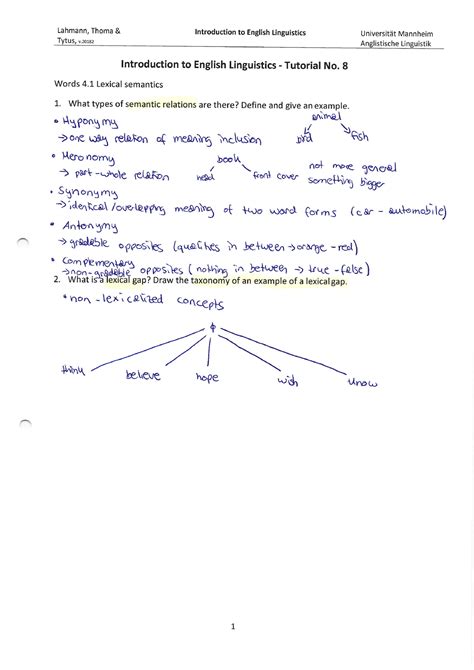 Lahmann, Thoma &
Introduction to English Linguistics
Universität Mannheim
Tytus, v.20182
Anglistische Linguistik
Introduction to English Linguistics - Tutorial No. 8
Words 4.1 Lexical semantics
1. What types of semantic relations are there? Define and give an example.
• Hyponymy
animal
→ one way relation of meaning inclusion
bird
fish
• Meronomy
book
→ part-whole relation
front cover
not more general
something bigger
• Synonymy
→ identical/overlapping meaning of two word forms (car - automobile)
• Antonymy
→ gradable opposites (qualities in between → orange - red)
• Complementary
→ non-gradable opposites (nothing in between → true - false)
2. What is a lexical gap? Draw the taxonomy of an example of a lexical gap.
• non-lexicalized concepts
ϕ
think
believe
hope
wish
know
1